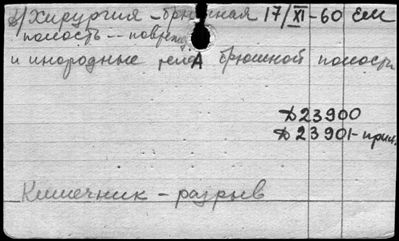 Хирургия - брюшная 17/XI-60 Ем
полость -- повреж
и инородные тела брюшной полости
Д23900
Д23901-прил.
Кишечник - разрыв